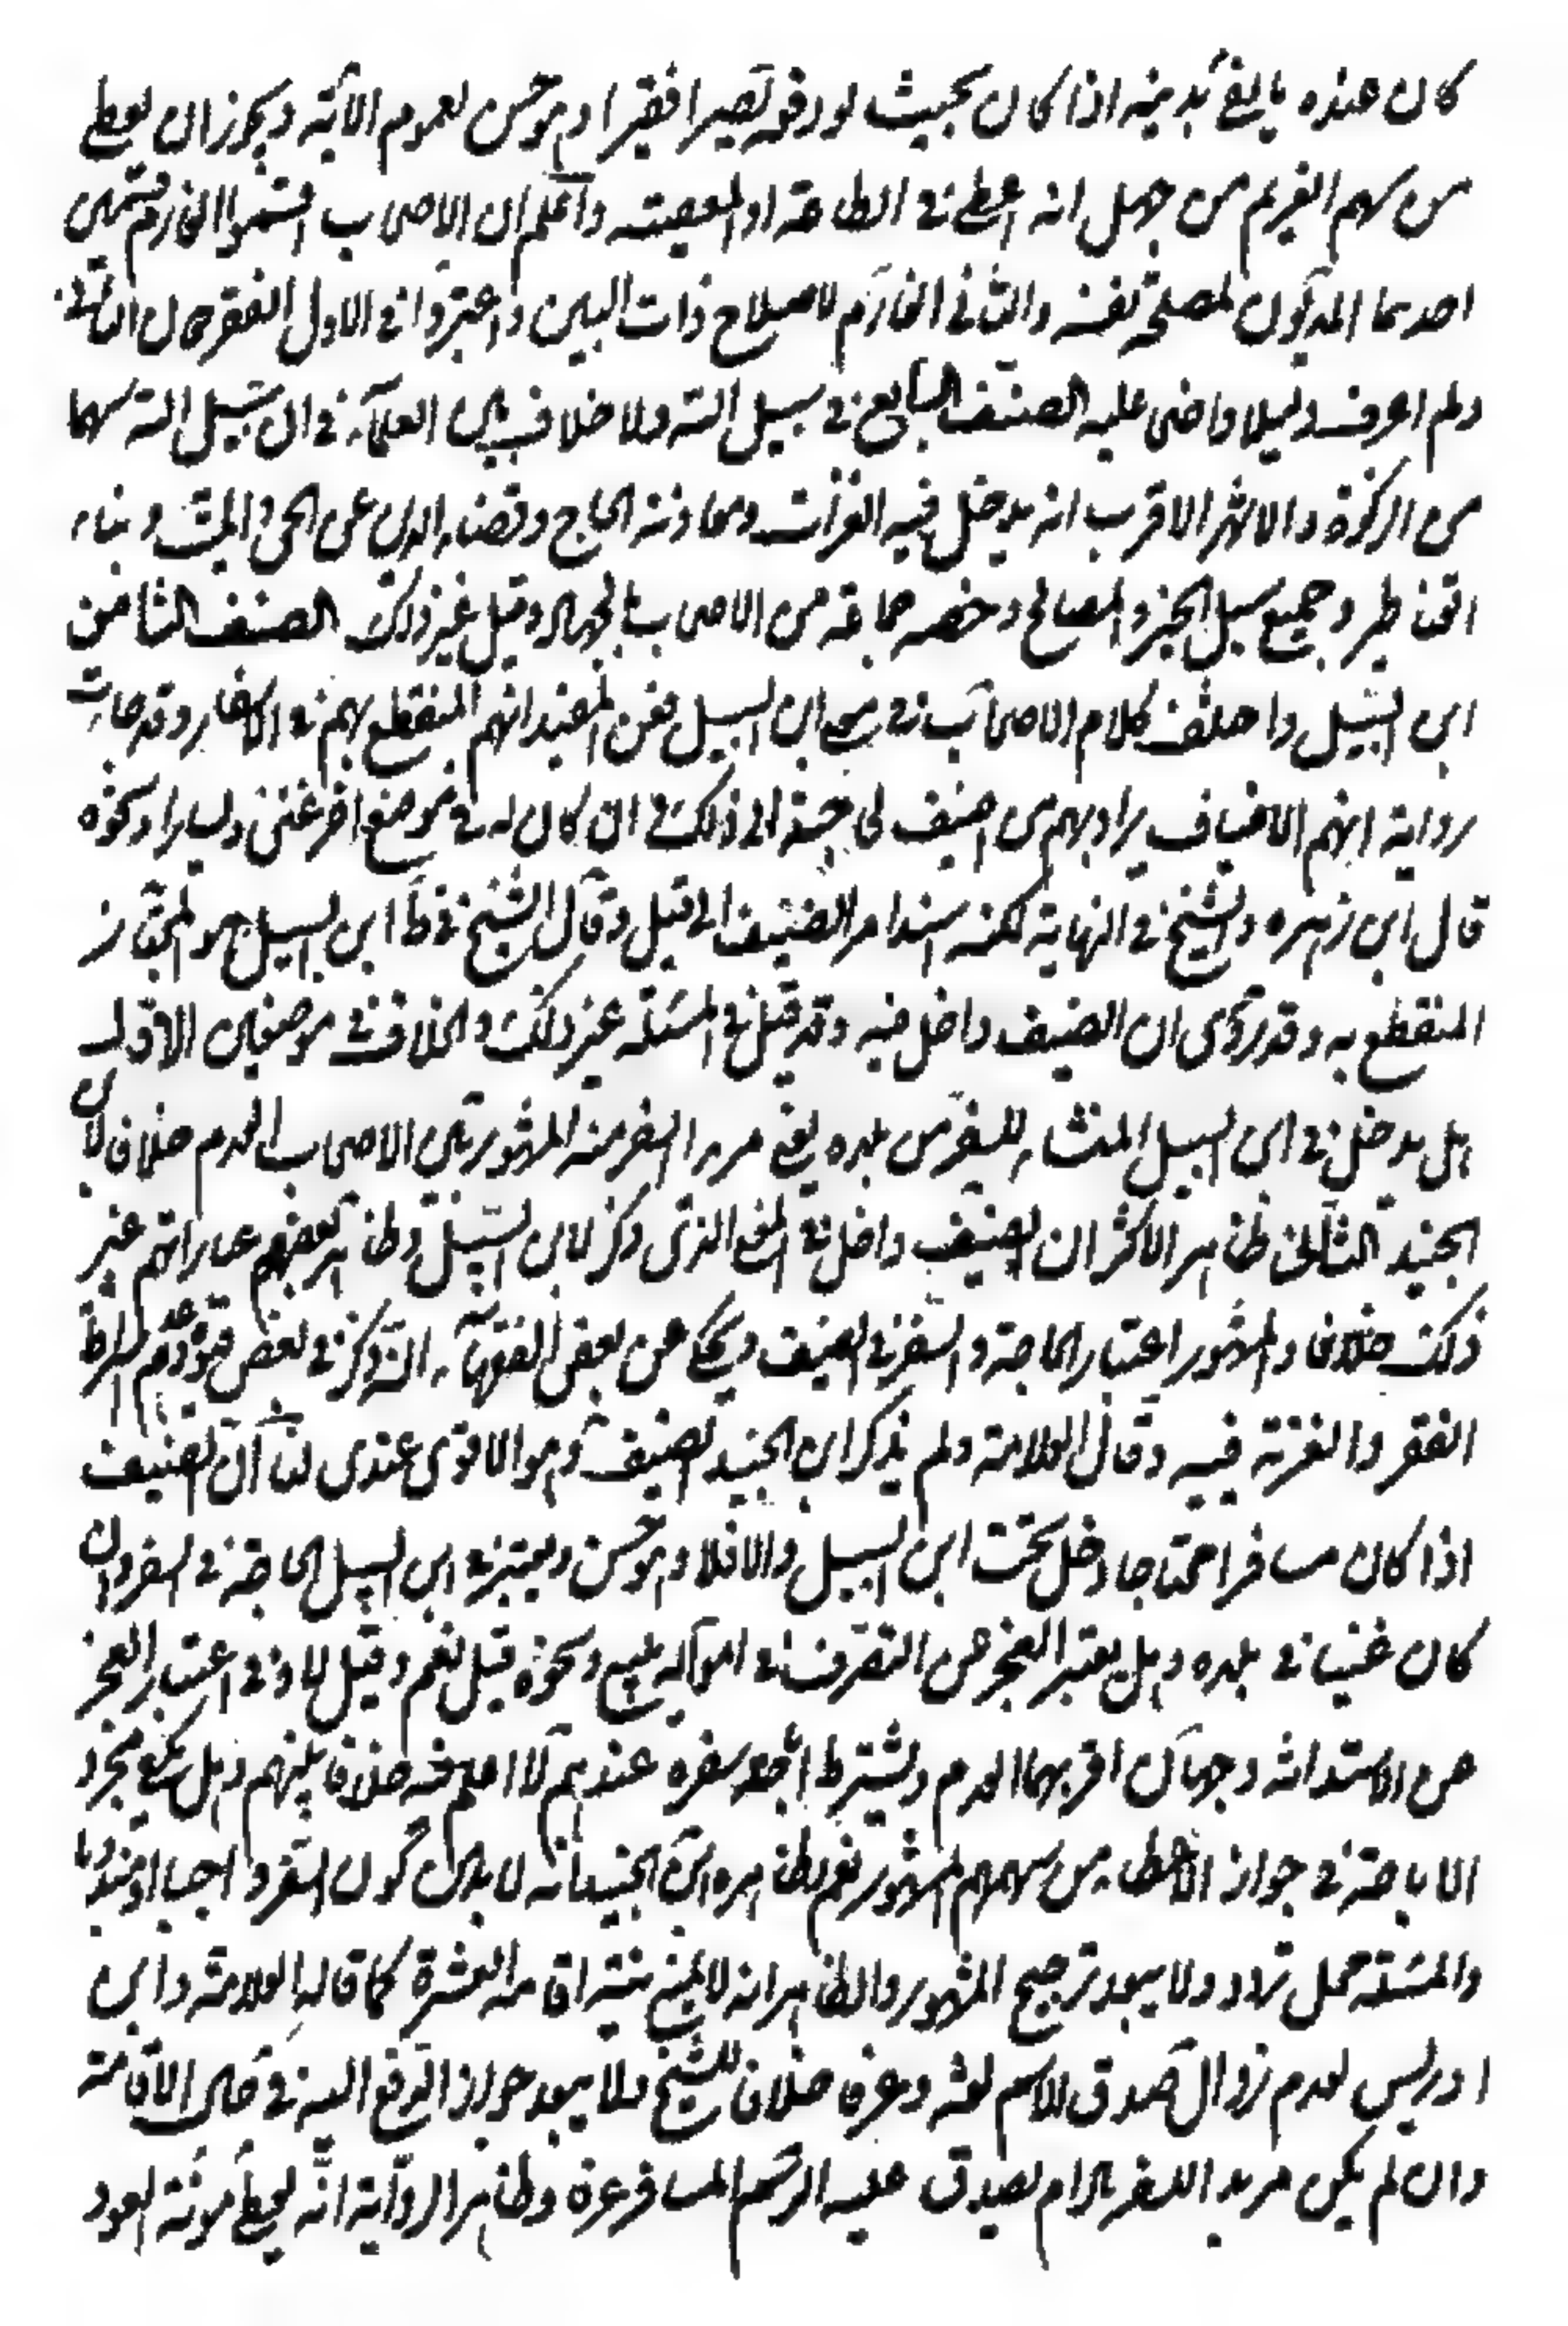 كان عنده ما يفي بدينه اذا كان بحيث لو دفعه يصير فقيرا وهو حسن لعموم الآية ويجوز ان يعطى
من سهم الغريم من جهل انه اعطى في الطاعة او المعصية واعلم ان الاصحاب قسموا الغارم قسمين
احدهما المديون لمصلحة نفسه والثاني الغارم لاصلاح ذات البين واعتبروا في الاول الفقر دون الثاني
ولم اعرف دليلا واضحا عليه الصنف السابع في سبيل الله ولا خلاف بين العلماء في ان لسبيل الله سهما
من الزكوة والاشهر الاقرب انه يدخل فيه الغزاة ومعاونة الحاج وقضاء الدين عن الحي والميت وبناء
القناطر وجميع سبل الخير والمصالح وخصه جماعة من الاصحاب بالجهاد وقيل غير ذلك الصنف الثامن
ابن السبيل واختلف كلام الاصحاب في معنى ابن السبيل فعن المفيد انهم المنقطع بهم في الاسفار وقد جاءت
رواية انهم الاضياف يراد بهم من اضيف لحاجته الى ذلك وان كان له في موضع اخر غنى ويسار او نحوه
قال ابن زهره والشيخ في النهاية لكنه اسند امر الضيف الى قيل وقال الشيخ في ط ابن السبيل هو المجتاز
المنقطع به وقد روى ان الضيف داخل فيه وقد قيل في المسئلة غير ذلك والخلاف في موضعين الاول
هل يدخل في ابن السبيل المنشئ للسفر من بلده يعني مريد السفر منه المشهور بين الاصحاب العدم خلافا لابن
الجنيد الثاني ظاهر الاكثر ان الضيف داخل في المعنى الذي ذكر لابن السبيل وظاهر بعضهم عباراتهم غير
ذلك خلافا والمشهور اعتبار الحاجة والسفر في الضيف ويحكى عن بعض الفقهاء انه ذكر في بعض قيوده عدم اشتراط
الفقر والغربة فيه وقال العلامة ولم يذكر ابن الجنيد الضيف وهو الاقوى عندي لنا ان الضيف
اذا كان مسافرا محتاجا دخل تحت ابن السبيل والا فلا وهو حسن ويعتبر في ابن السبيل الحاجة في السفر وان
كان غنيا في بلده وهل يعتبر العجز عن التصرف في امواله ببيع ونحوه قيل نعم وقيل لا وفي اعتبار العجز
عن الاستدانة وجهان اقربهما العدم ويشترط اباحة سفره عندهم لا اعلم فيه خلافا بينهم وهل يكفي مجرد
الاباحة في جواز الاعطاء من سهمهم المشهور نعم وظاهر ابن الجنيد انه لا بد ان يكون السفر واجبا او مندوبا
والمسئلة محل تردد ولا يبعد ترجيح المشهور والظاهر انه لا يمنع منه نية اقامة العشرة كما قاله العلامة وابن
ادريس لعدم زوال صدق الاسم لغة وعرفا خلافا للشيخ ولا يبعد جواز الدفع اليه في حال الاقامة
وان لم يكن مريد السفر مادام يصدق عليه اسم المسافر عرفا وظاهر الرواية انه يعطى مؤنة العود